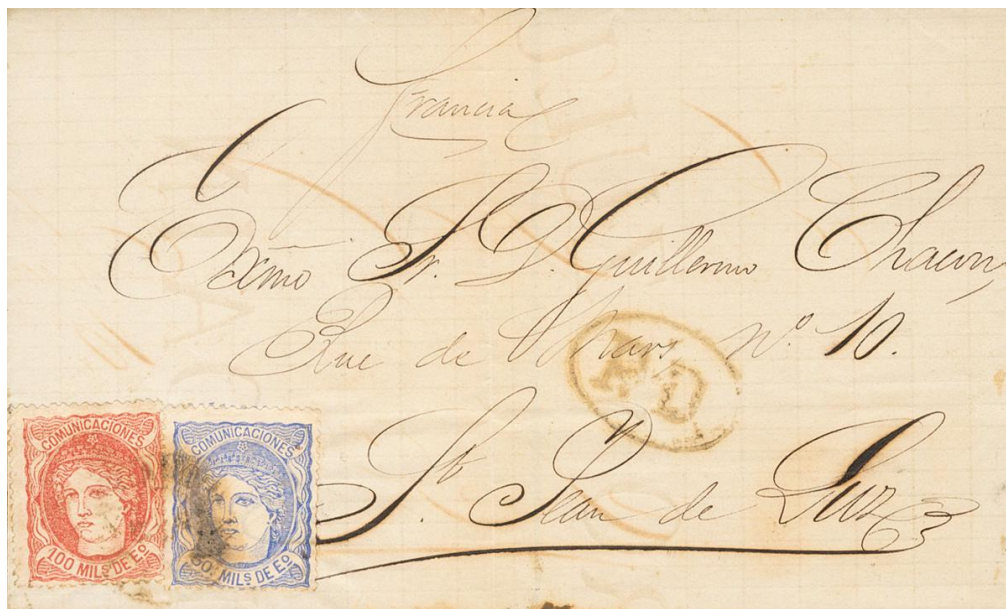 Francia
Exmo Sr. D. Guillermo Chacon,
Rue de Mars nº 10.
St. Jean de Luz
P.D
COMUNICACIONES
100 MILS DE Eº
COMUNICACIONES
50 MILS DE Eº